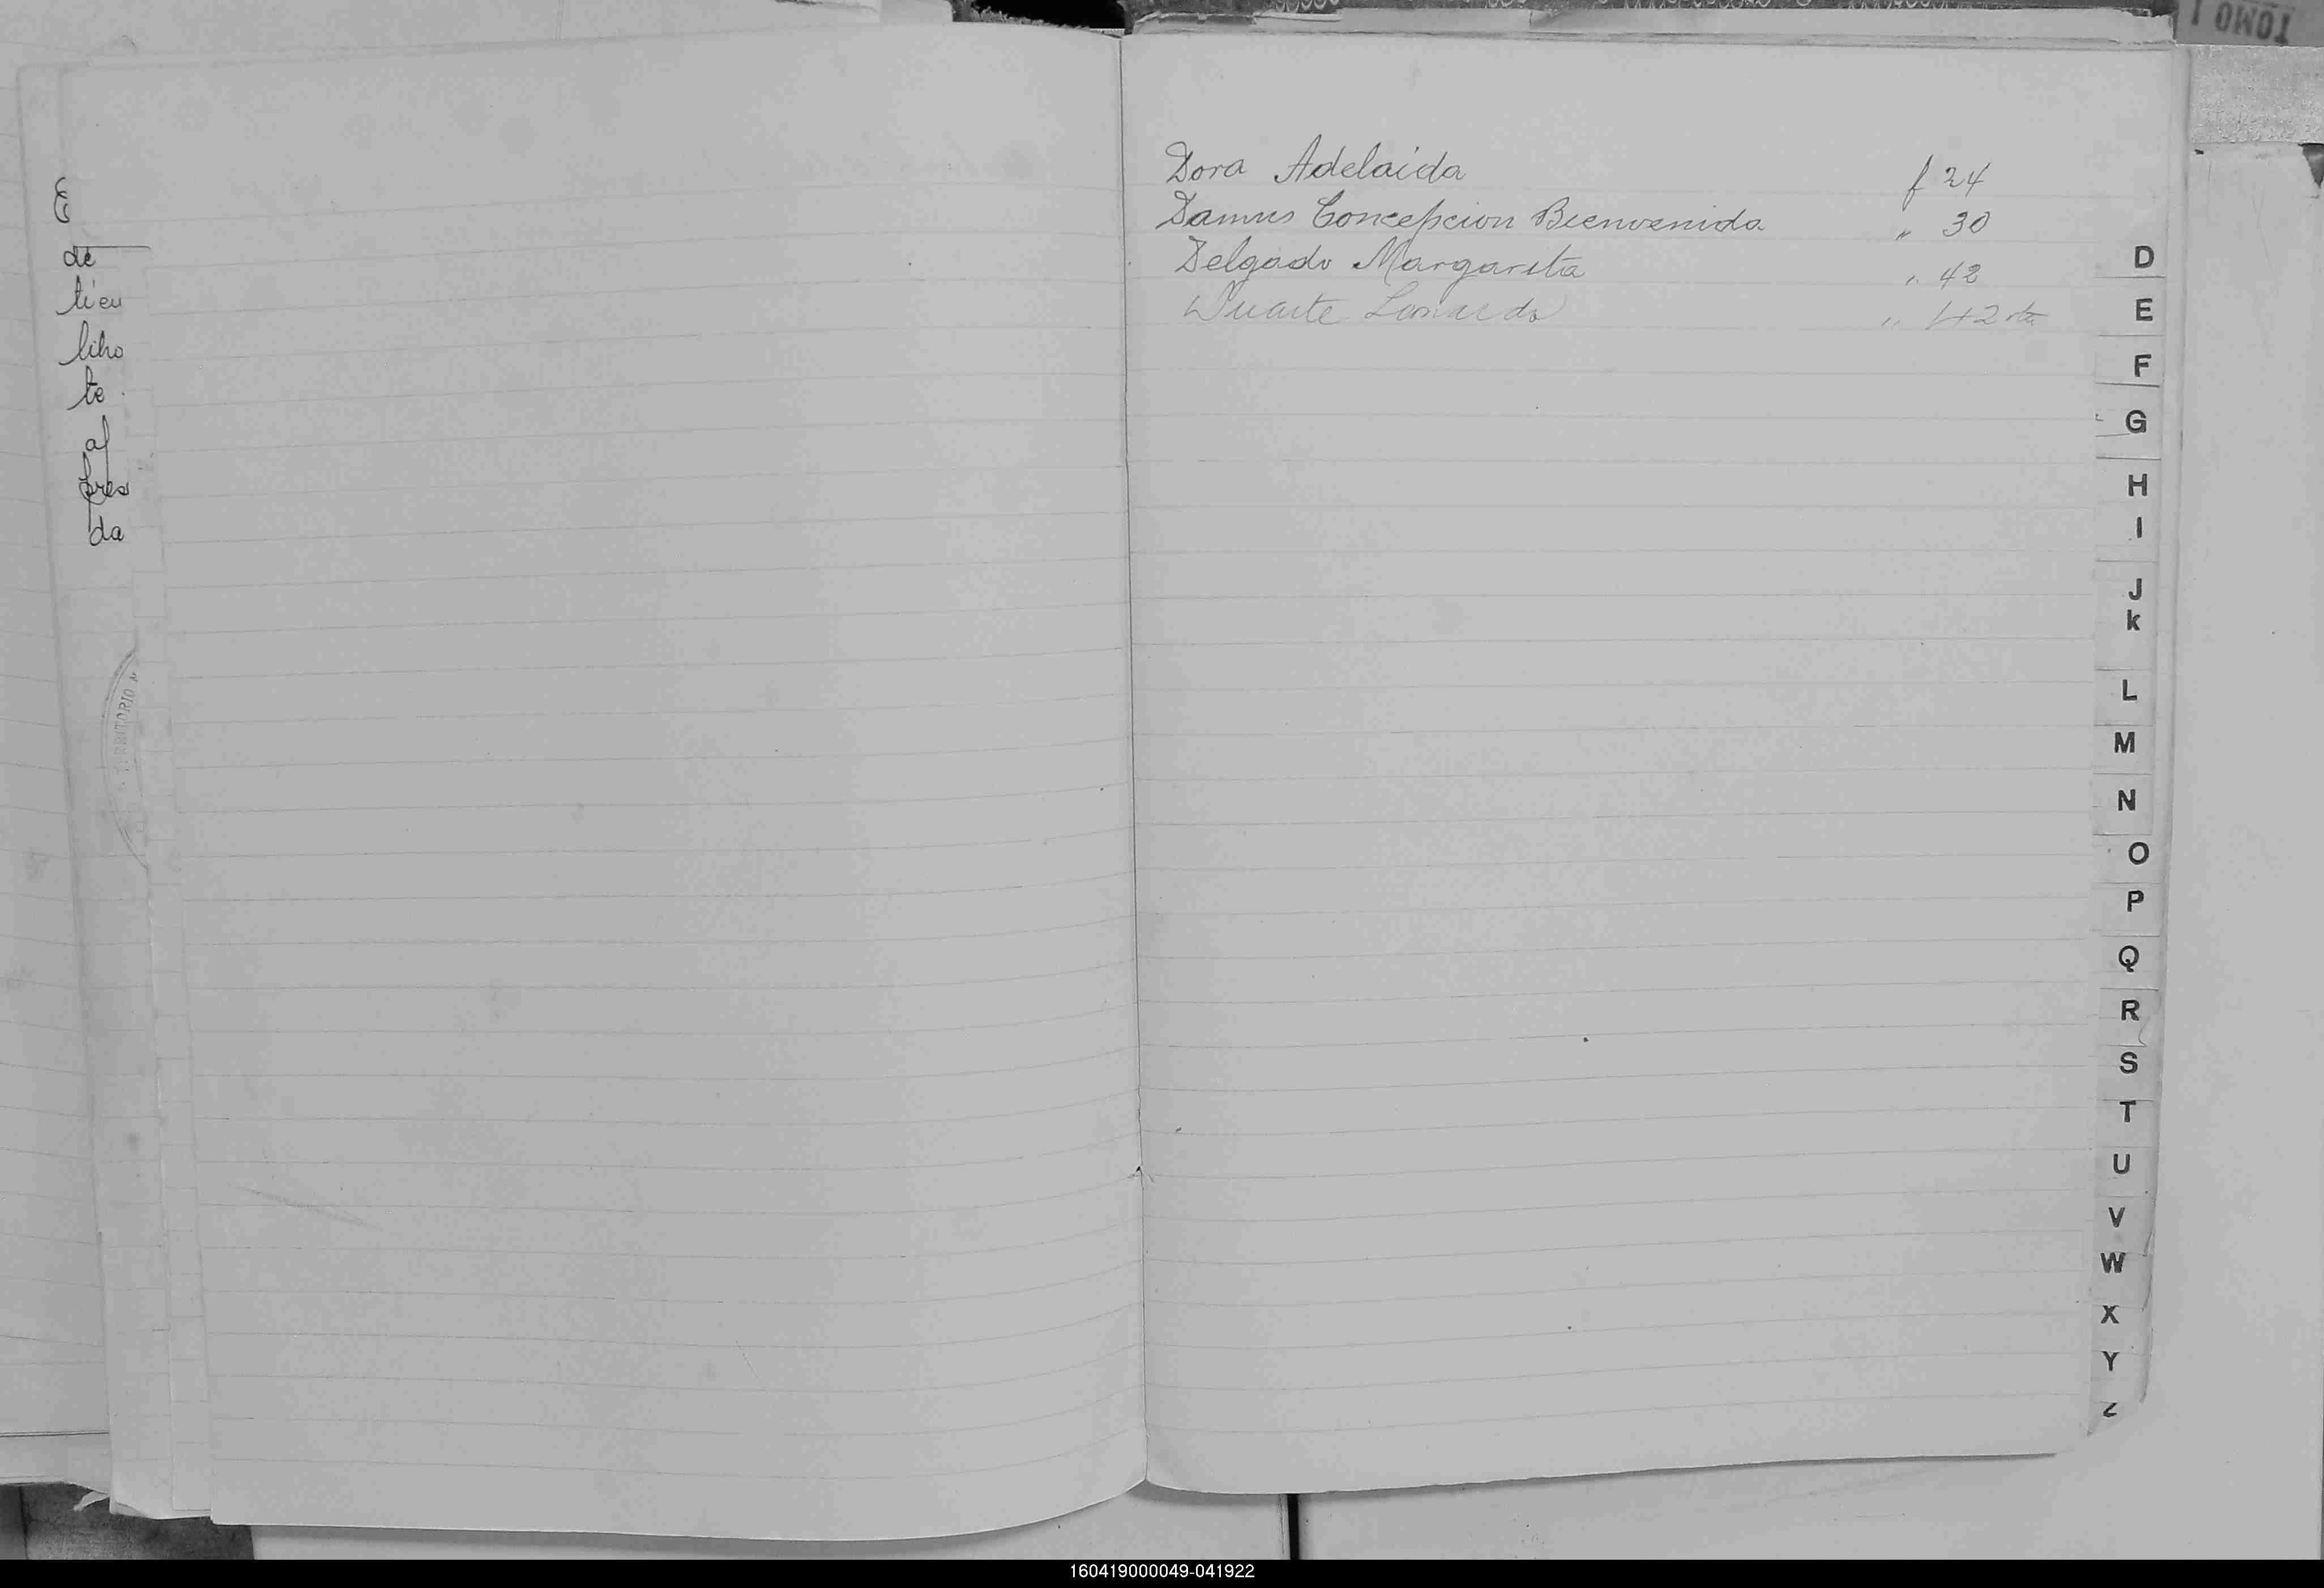 TOMO I
E
de
tieu
liho
te
af
pres
da
TERRITORIO N
Dora Adelaida f 24
Damus Concepcion Bienvenida " 30
Delgado Margarita " 42
Duarte Leonardo " 42 vta
D
E
F
G
H
I
J
k
L
M
N
O
P
Q
R
S
T
U
V
W
X
Y
Z
160419000049-041922